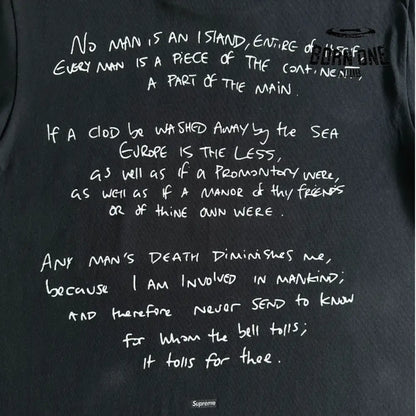 No man is an island, entire of itself
Every man is a piece of the continent,
a part of the main.
If a clod be washed away by the sea
Europe is the less,
as well as if a promontory were,
as well as if a manor of thy friends
or of thine own were.
Any man's death diminishes me,
because I am involved in mankind;
and therefore never send to know
for whom the bell tolls;
it tolls for thee.
BORN ONE
Supreme